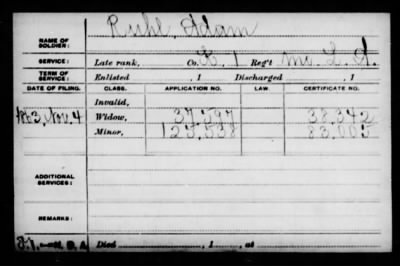 NAME OF SOLDIER: Ruhl, Adam
SERVICE: Late rank, Co. K, 1 Reg't Mo. L. A.
TERM OF SERVICE: Enlisted , 1 Discharged , 1
DATE OF FILING. CLASS. APPLICATION NO. LAW. CERTIFICATE NO.
Invalid,
1863, Nov. 4 Widow, 37,597 38,342
Minor, 123,538 83,005
ADDITIONAL SERVICES:
REMARKS:
Died , 1 , at